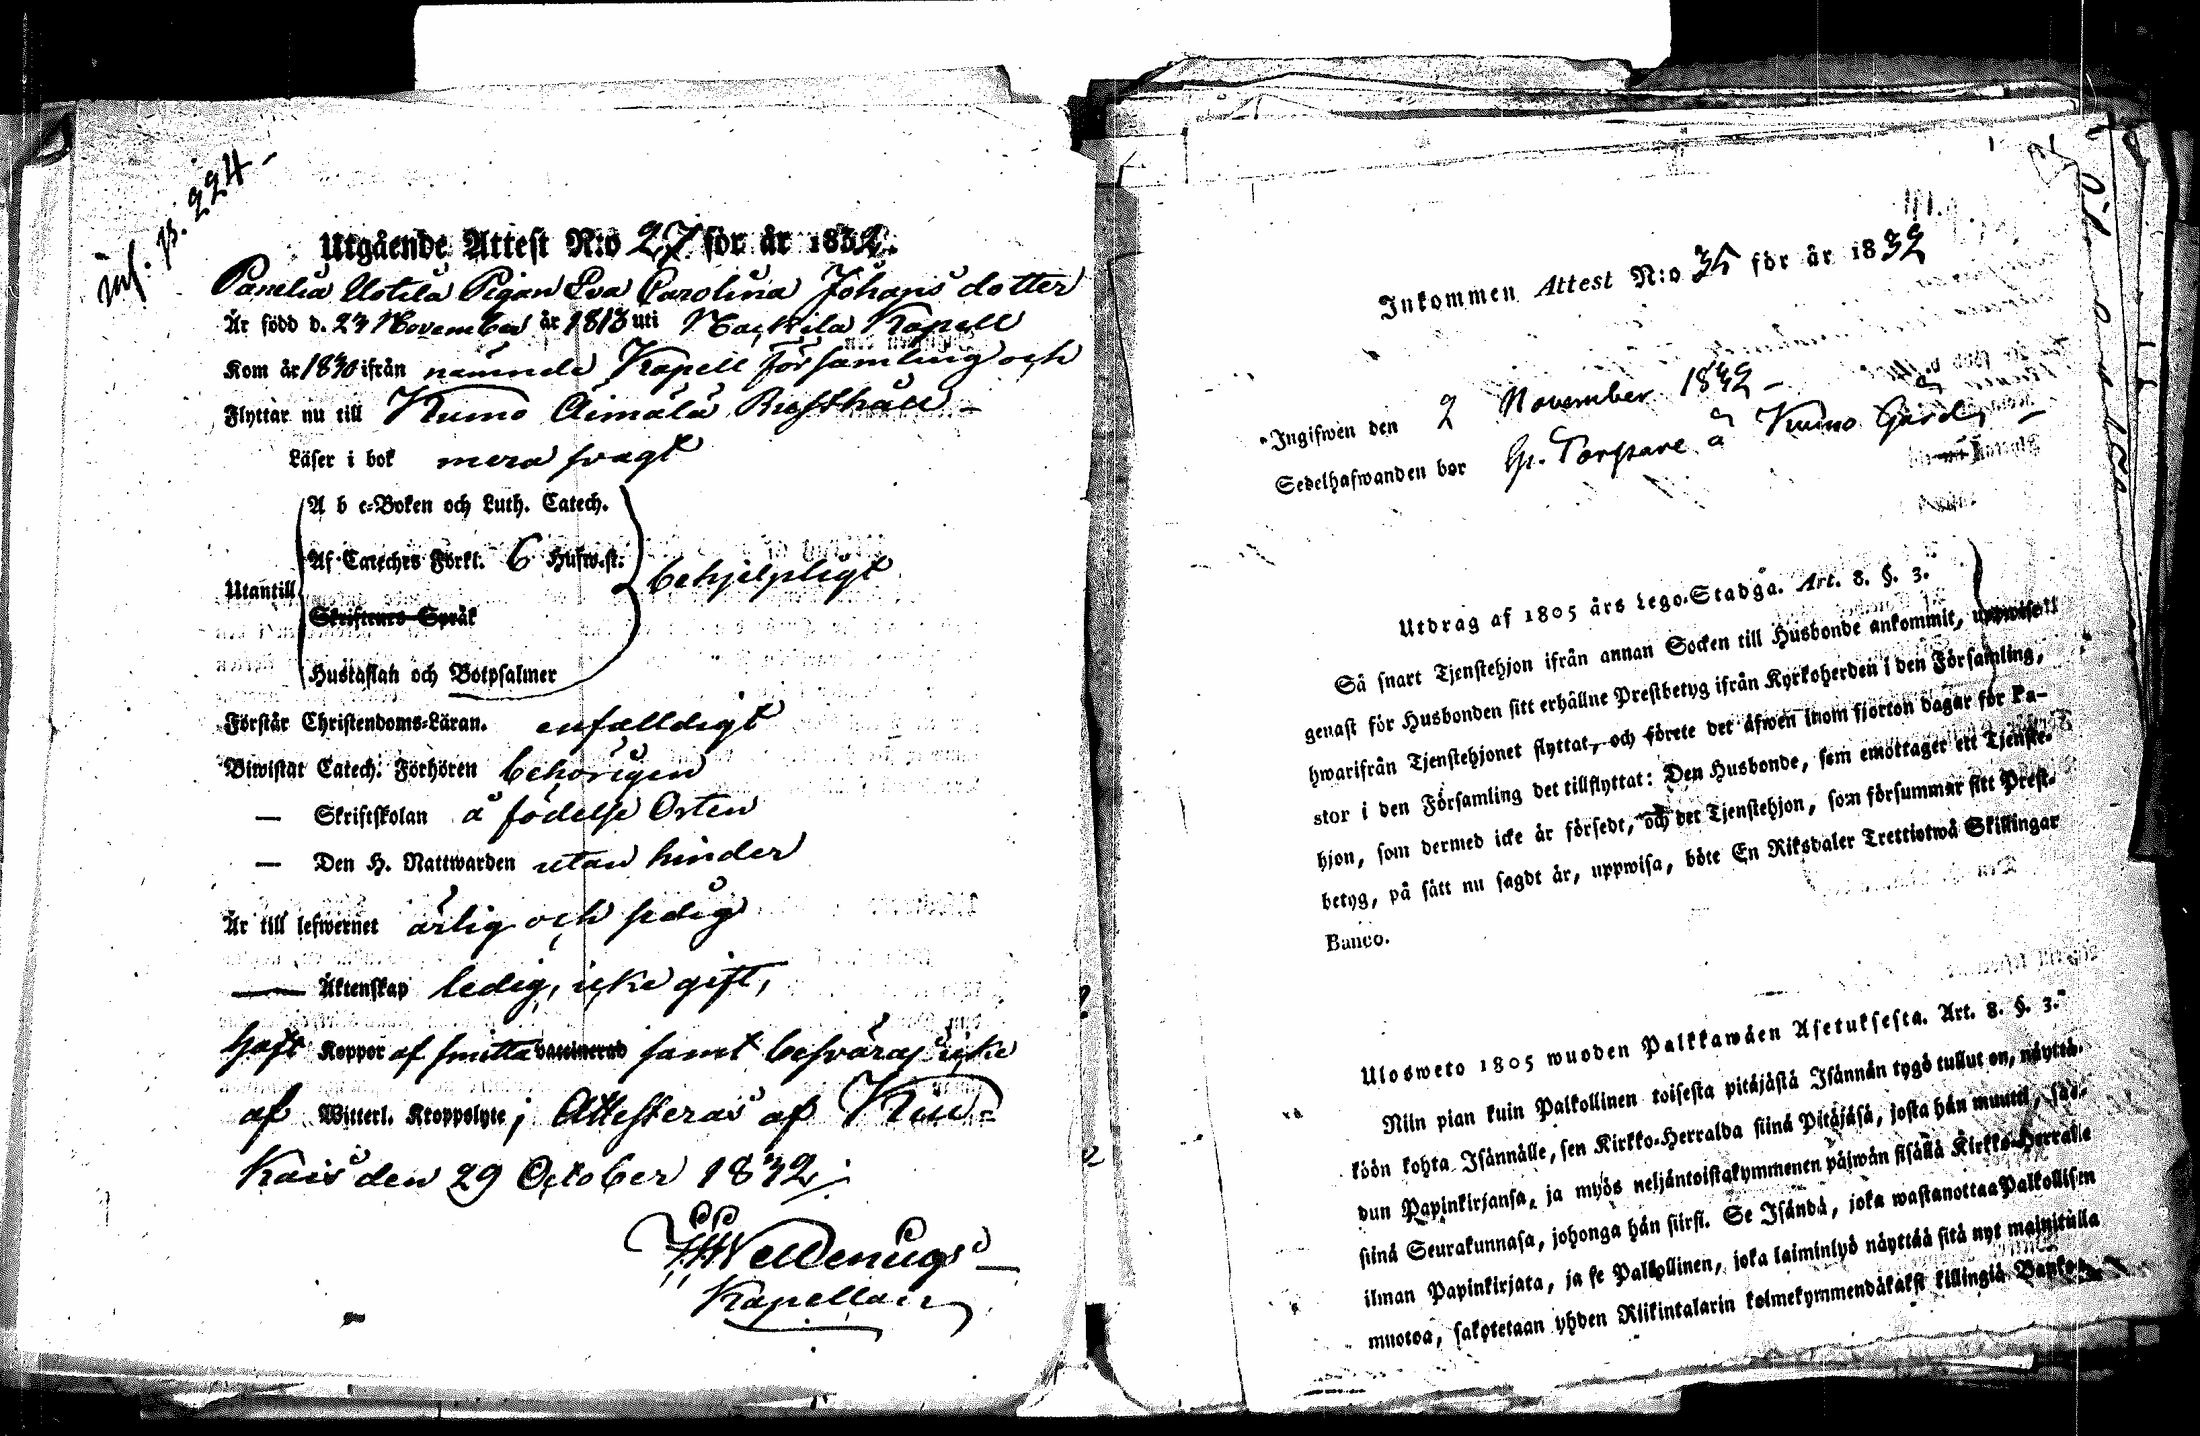 inf. p. 224 -
Utgående Attest N:o 27 för år 1832.
Panelia Uotila Pigan Eva Carolina Johans dotter
Är född d. 23 November år 1813 uti Nackila Kapell
Kom år 1830 ifrån nämnde Kapell församling och
Flyttar nu till Kumo Aimälä Rusthåll -
Läser i bok mera svagt
A b c-Boken och Luth. Catech.
Af Cateches Förkl. 6 Hufw.st.
Utantill behjelpligt
Skriftenes Språk
Hustaflan och Botpsalmer
Förstår Christendoms-Läran. enfalldigt
Biwistat Catech. Förhören behörigen
— Skriftskolan å födelse Orten
— Den H. Nattwarden utan hinder
Är till lefwernet ärlig och sedig
Äktenskap ledig, icke gift,
haft Koppor af smitta vaccinerad samt besväras icke
af Witterl. Kroppslyte; Attesteras af Kiu-
kais den 29 October 1832.
Kapellan
Inkommen Attest N:o 35 för år 1832
Ingifwen den 2 November 1832 -
Sedelhafwanden bor Gr. Torpare å Kumo Gård
Utdrag af 1805 års Lego-Stadga. Art. 8. §. 3.
Så snart Tjenstehjon ifrån annan Socken till Husbonde ankommit, uppwise
genast för Husbonden sitt erhållne Prestbetyg ifrån Kyrkoherden i den Församling,
hwarifrån Tjenstehjonet flyttat, och förete det äfwen inom fjorton dagar för Pa-
stor i den Församling det tillflyttat: Den Husbonde, som emottager ett Tjenste-
hjon, som dermed icke är försedt, och det Tjenstehjon, som försummar sitt Prest-
betyg, på sätt nu sagdt är, uppwisa, böte En Riksdaler Trettiotwå Skillingar
Banco.
Ulosweto 1805 wuoden Palkkawäen Asetuksesta. Art. 8. §. 3.
Niin pian kuin Palkollinen toisesta pitäjästä Isännän tygö tullut on, näyttä-
köön kohta Isännälle, sen Kirkko-Herralda siinä Pitäjäsä, josta hän muutti, saa-
dun Papinkirjansa, ja myös neljäntoistakymmenen päiwän sisällä Kirkko-Herralle
siinä Seurakunnasa, johonga hän siirsi. Se Isändä, joka wastanottaa Palkollisen
ilman Papinkirjata, ja se Palkollinen, joka laiminlyö näyttää sitä nyt mainitulla
muotoa, sakotetaan yhden Riikintalarin kolmekymmendäkaksi killingiä Bankos